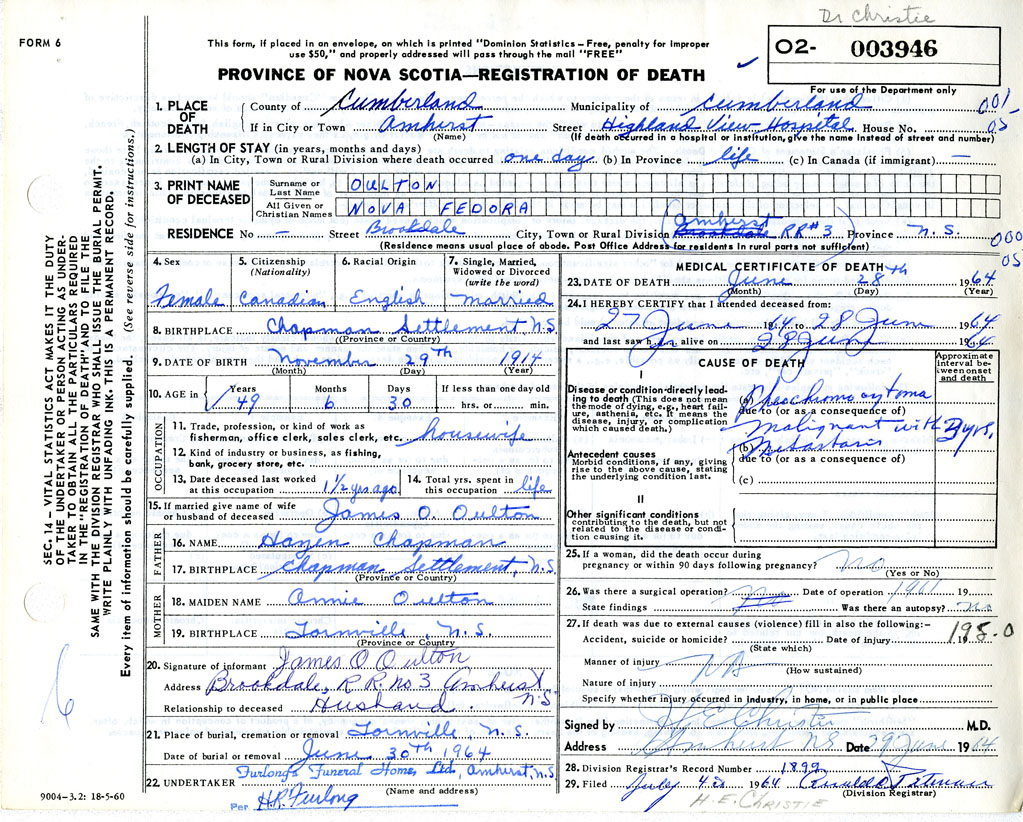 Dr Christie
FORM 6
This form, if placed in an envelope, on which is printed "Dominion Statistics – Free, penalty for improper
use $50," and properly addressed will pass through the mail "FREE"
02- 003946
PROVINCE OF NOVA SCOTIA—REGISTRATION OF DEATH
For use of the Department only
1. PLACE OF DEATH
County of Cumberland Municipality of Cumberland 001-
If in City or Town Amherst Street Highland View Hospital House No. 05-
(Name) (If death occurred in a hospital or institution, give the name instead of street and number)
2. LENGTH OF STAY (in years, months and days)
(a) In City, Town or Rural Division where death occurred one day (b) In Province life (c) In Canada (if immigrant) —
3. PRINT NAME OF DECEASED
Surname or Last Name OULTON
All Given or Christian Names NOVA FEDORA
RESIDENCE No — Street Brookdale City, Town or Rural Division Brookdale Amherst RR#3 Province N.S. 000
(Residence means usual place of abode. Post Office Address for residents in rural parts not sufficient) 05
4. Sex 5. Citizenship (Nationality) 6. Racial Origin 7. Single, Married, Widowed or Divorced (write the word)
Female Canadian English Married
8. BIRTHPLACE Chapman Settlement N.S.
(Province or Country)
9. DATE OF BIRTH November 29th 1914
(Month) (Day) (Year)
10. AGE in Years Months Days If less than one day old
49 6 30 hrs. or min.
OCCUPATION
11. Trade, profession, or kind of work as
fisherman, office clerk, sales clerk, etc. housewife
12. Kind of industry or business, as fishing,
bank, grocery store, etc.
13. Date deceased last worked at this occupation 1½ yrs ago 14. Total yrs. spent in this occupation life
15. If married give name of wife
or husband of deceased James O. Oulton
FATHER
16. NAME Hazen Chapman
17. BIRTHPLACE Chapman Settlement, N.S.
(Province or Country)
MOTHER
18. MAIDEN NAME Annie Oulton
19. BIRTHPLACE Lornville, N.S.
(Province or Country)
20. Signature of informant James O Oulton
Address Brookdale, R.R. no 3 Amherst N.S
Relationship to deceased Husband.
21. Place of burial, cremation or removal Lornville, N.S.
Date of burial or removal June 30th 1964
22. UNDERTAKER Furlong's Funeral Home Ltd, Amherst, N.S.
(Name and address)
Per H.R. Furlong
MEDICAL CERTIFICATE OF DEATH
23. DATE OF DEATH June 28th 1964
(Month) (Day) (Year)
24. I HEREBY CERTIFY that I attended deceased from:
27 June 1964 to 28 June 1964
and last saw her alive on 28 June 1964
CAUSE OF DEATH
Approximate interval between onset and death
I
Disease or condition directly leading to death (This does not mean the mode of dying, e.g., heart failure, asthenia, etc. It means the disease, injury, or complication which caused death.)
(a) Pheochromocytoma
due to (or as a consequence of)
malignant with 3 yrs.
(b) Metastasis
due to (or as a consequence of)
Antecedent causes
Morbid conditions, if any, giving rise to the above cause, stating the underlying condition last.
(c)
II
Other significant conditions
contributing to the death, but not related to the disease or condition causing it.
25. If a woman, did the death occur during
pregnancy or within 90 days following pregnancy? no
(Yes or No)
26. Was there a surgical operation? Date of operation 1961 19
State findings Was there an autopsy? no
27. If death was due to external causes (violence) fill in also the following:-
195.0
Accident, suicide or homicide? Date of injury 19
(State which)
Manner of injury
(How sustained)
Nature of injury
Specify whether injury occurred in industry, in home, or in public place
Signed by H E Christie M.D.
Address Amherst NS. Date 29 June 1964
28. Division Registrar's Record Number 1899
29. Filed July 4th 1964
(Division Registrar)
H.E. CHRISTIE
SEC. 14 – VITAL STATISTICS ACT MAKES IT THE DUTY
OF THE UNDERTAKER OR PERSON ACTING AS UNDER-
TAKER TO OBTAIN ALL THE PARTICULARS REQUIRED
IN THE "REGISTRATION OF DEATH" AND TO FILE THE
SAME WITH THE DIVISION REGISTRAR WHO SHALL ISSUE THE BURIAL PERMIT.
WRITE PLAINLY WITH UNFADING INK. THIS IS A PERMANENT RECORD.
Every item of information should be carefully supplied. (See reverse side for instructions.)
6
9004-3.2: 18-5-60